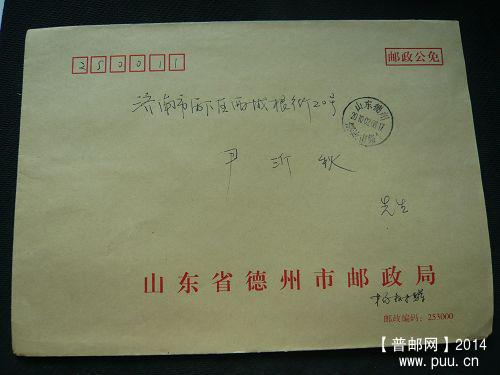 250011
邮政公免
济南市历下区西城根街20号
山东德州
尹沂秋
先生
山东省德州市邮政局
邮政编码：253000
【普邮网】2014
www.puu.cn